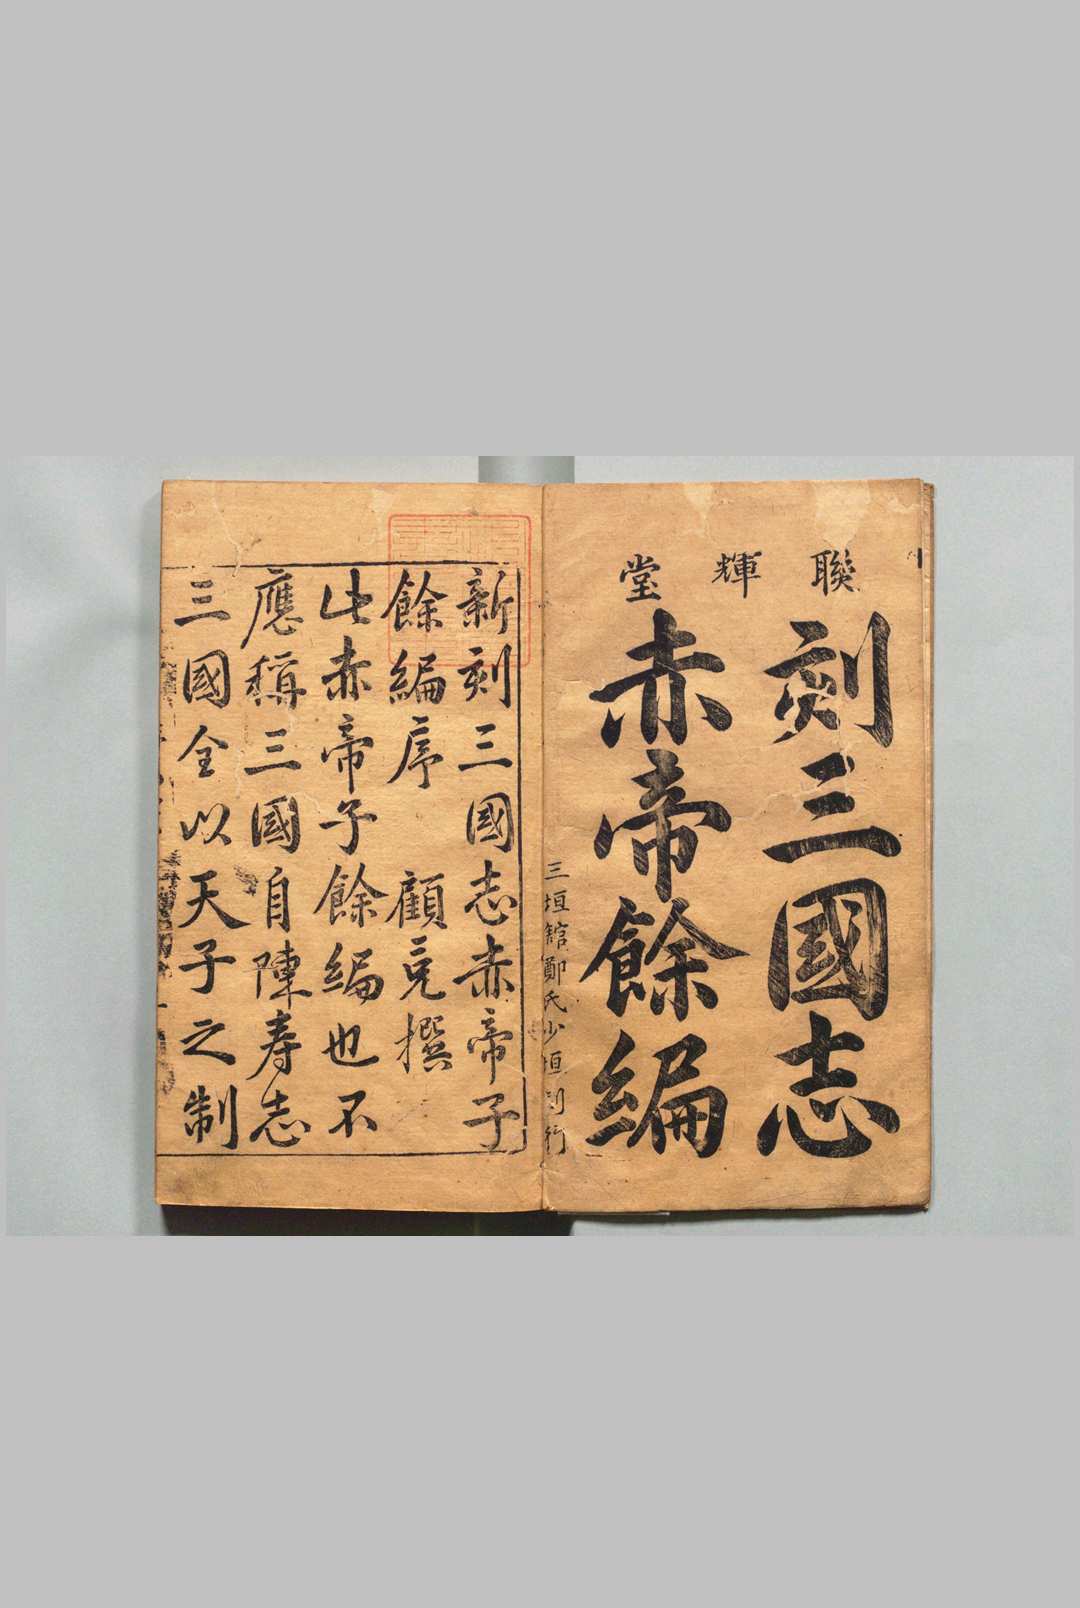 聯輝堂
刻三國志
赤帝餘編
三垣館鄭氏少垣刊行
新刻三國志赤帝子
餘編序 顧充撰
此赤帝子餘編也不
應稱三國自陳壽志
三國全以天子之制